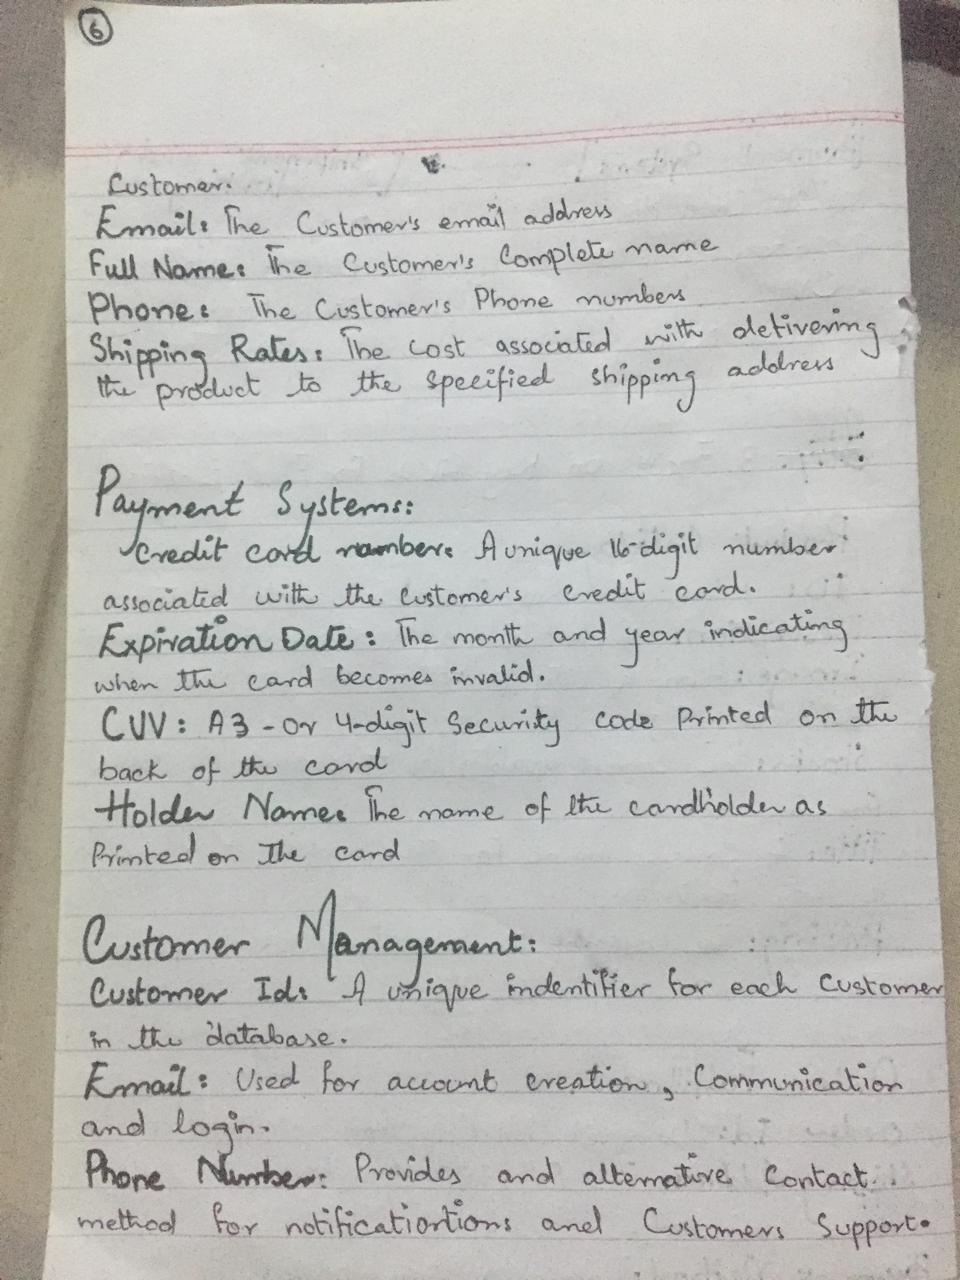 6
Customer.
Email: The Customer's email address
Full Name: The Customer's Complete name
Phone: The Customer's Phone numbers
Shipping Rates: The cost associated with detivering
the product to the specified shipping address
Payment Systems:
Credit card number: A unique 16-digit number
associated with the customer's credit card.
Expiration Date: The month and year indicating
when the card becomes invalid.
CUV: A 3-or 4-digit Security code Printed on the
back of the card
Holder Name: The name of the cardholder as
Printed on The card
Customer Management:
Customer Id: A unique indentifier for each Customer
in the database.
Email: Used for account creation, Communication
and login.
Phone Number: Provides and alternative Contact
method for notificatiortions and Customers Support.